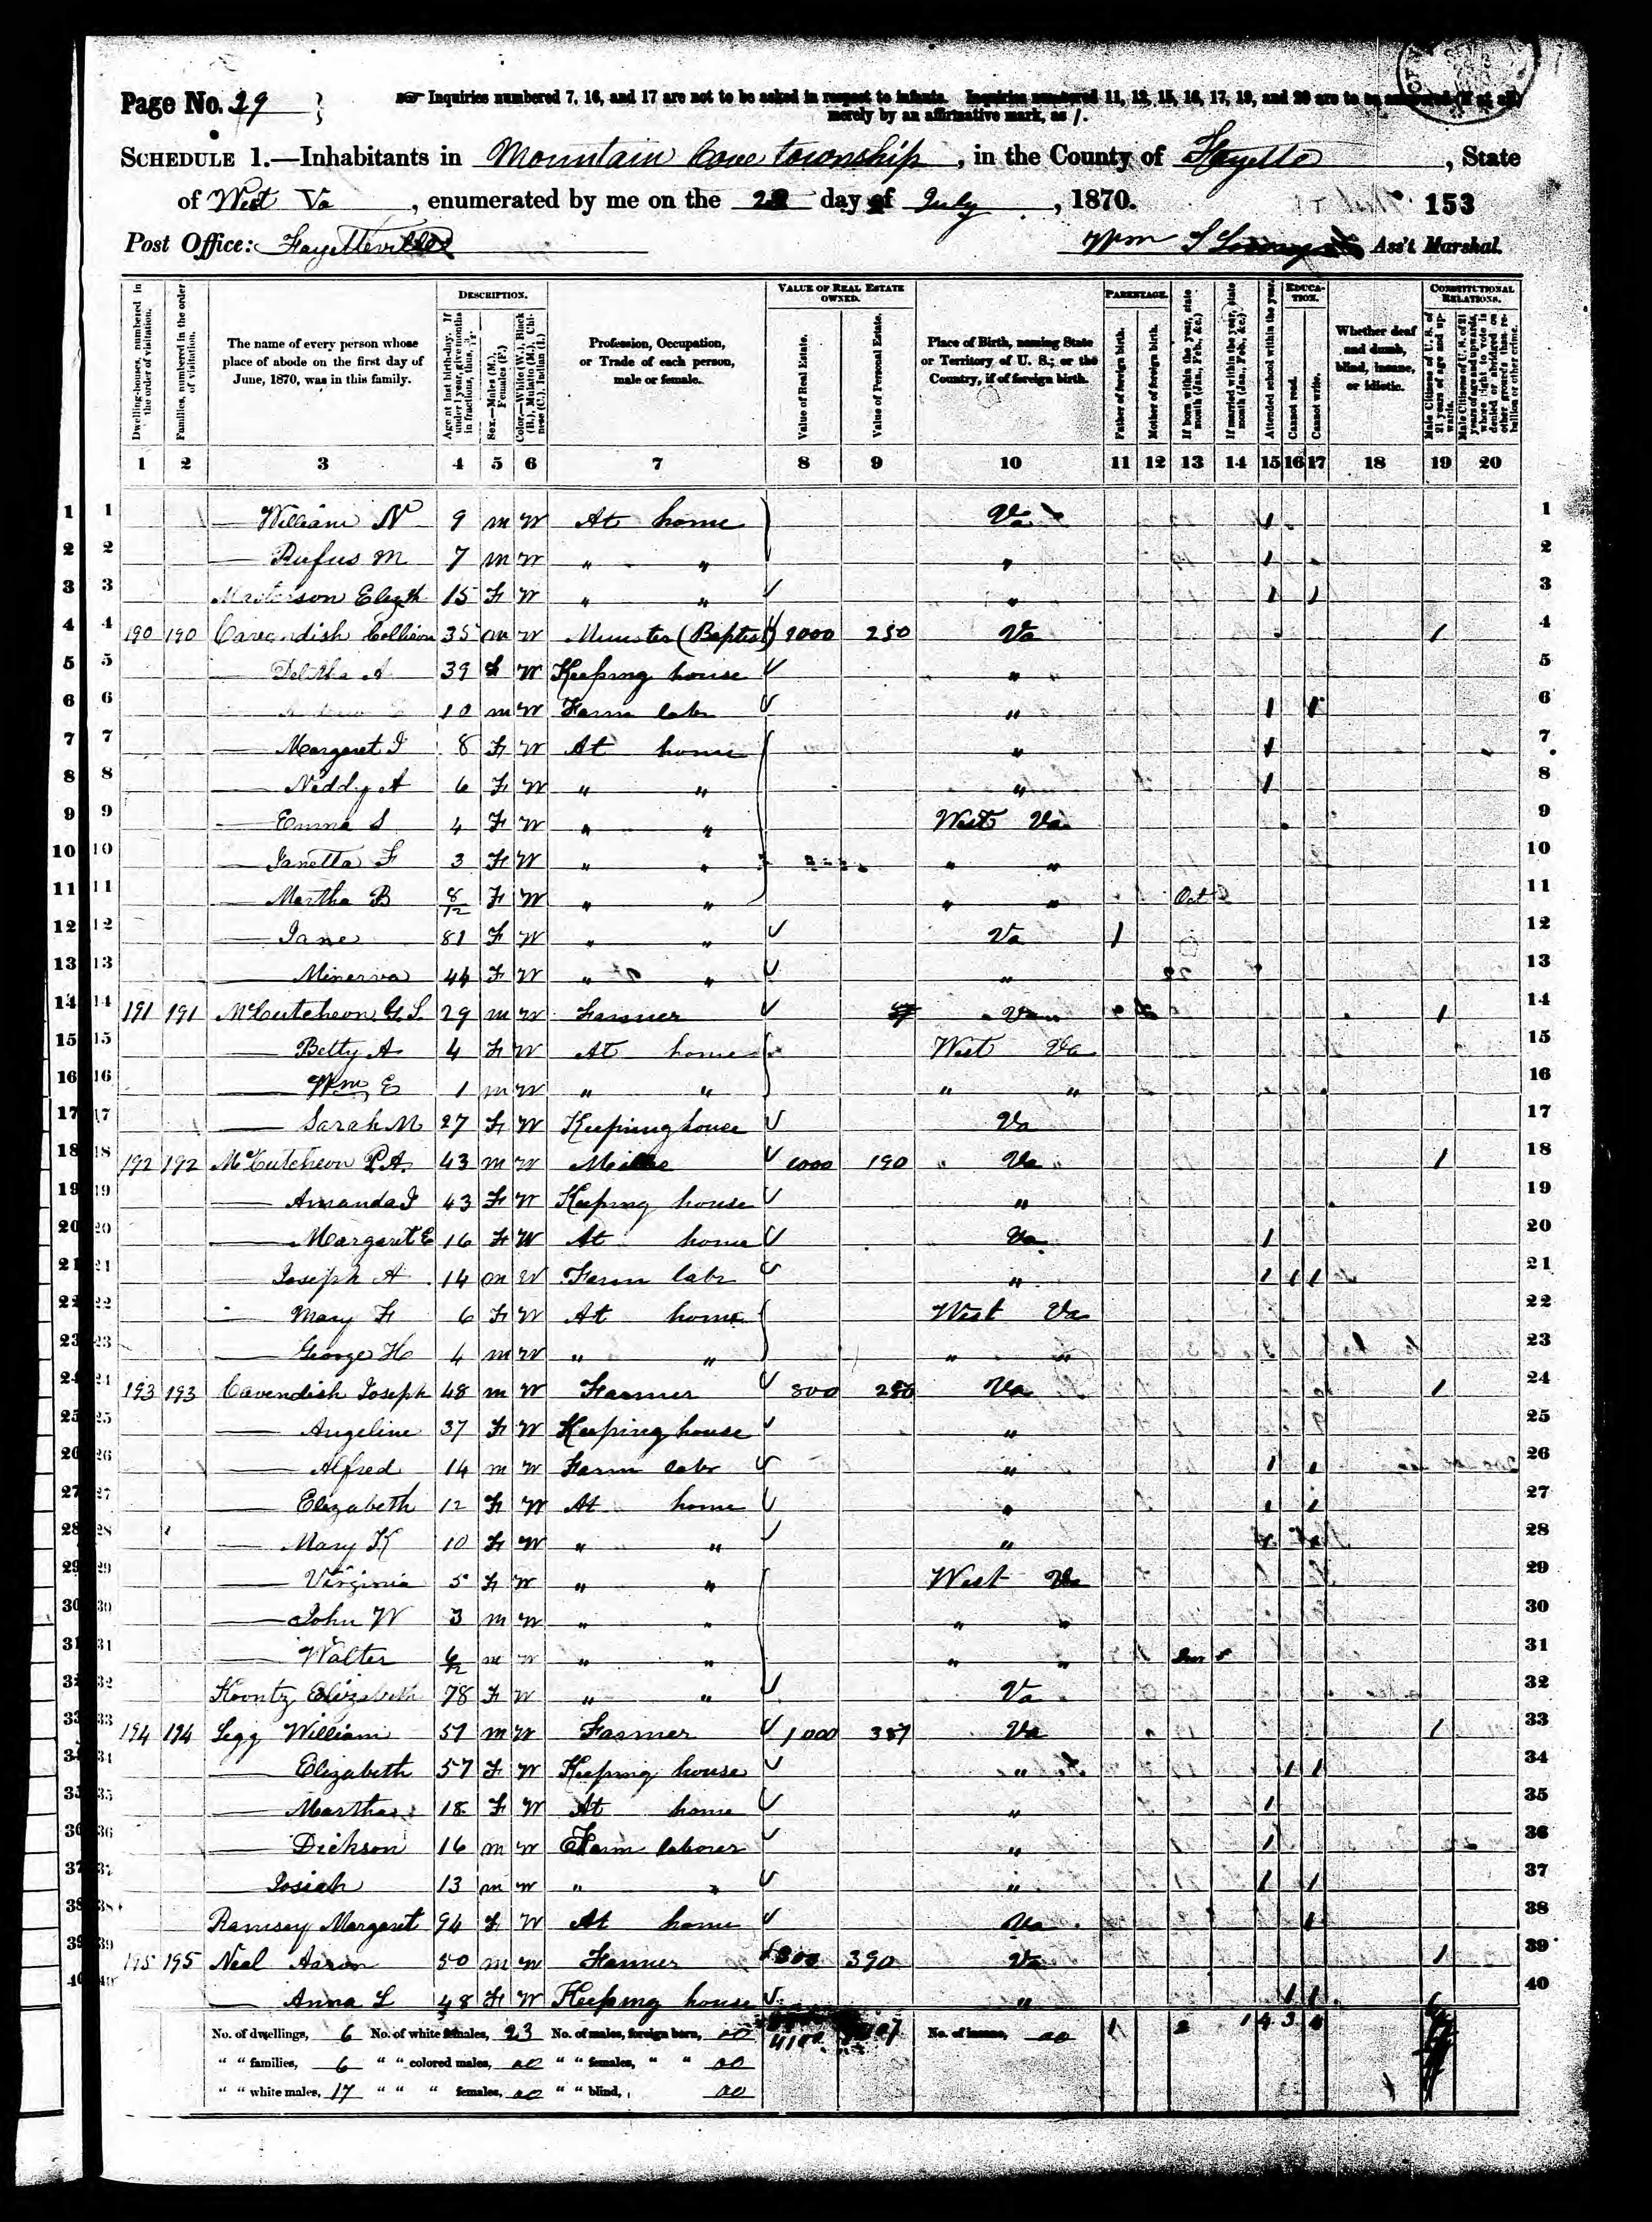 Page No. 29
Inquiries numbered 7, 16, and 17 are not to be asked in respect to infants. Inquiries numbered 11, 12, 15, 16, 17, 19, and 20 are to be answered (if at all)
merely by an affirmative mark, as /.
SCHEDULE 1.—Inhabitants in Mountain Cove township, in the County of Fayette, State
of West Va, enumerated by me on the day of July, 1870. 153
Post Office: Fayetteville Wm S Ass't Marshal.
DESCRIPTION. VALUE OF REAL ESTATE OWNED. PARENTAGE. EDUCATION. CONSTITUTIONAL RELATIONS.
Dwelling-houses, numbered in the order of visitation.
Families, numbered in the order of visitation.
The name of every person whose place of abode on the first day of June, 1870, was in this family.
Age at last birth-day. If under 1 year, give months in fractions, thus, 3/12
Sex.—Males (M.), Females (F.)
Color.—White (W.), Black (B.), Mulatto (M.), Chinese (C.), Indian (I.)
Profession, Occupation, or Trade of each person, male or female.
Value of Real Estate.
Value of Personal Estate.
Place of Birth, naming State or Territory of U. S.; or the Country, if of foreign birth.
Father of foreign birth.
Mother of foreign birth.
If born within the year, state month (Jan., Feb., &c.)
If married within the year, state month (Jan., Feb., &c.)
Attended school within the year.
Cannot read.
Cannot write.
Whether deaf and dumb, blind, insane, or idiotic.
Male Citizens of U. S. of 21 years of age and upwards.
Male Citizens of U. S. of 21 years of age and upwards, where right to vote is denied or abridged on other grounds than rebellion or other crime.
1 2 3 4 5 6 7 8 9 10 11 12 13 14 15 16 17 18 19 20
1 1 — William N 9 m W At home Va 1 1
2 2 — Rufus M 7 m W " " " 1 2
3 3 Masterson Elizth 15 F W " " " 1 1 3
4 4 190 190 Cavendish Collison 35 m W Minister (Baptist) 250 Va 1 4
5 5 A 39 F W Keeping house " 5
6 6 10 m W Farm labr " 1 1 6
7 7 — Margaret J 8 F W At home " 1 7
8 8 — Niddy A 6 F W " " " 1 8
9 9 — Emma S 4 F W " " West Va 9
10 10 — Janetta F 3 F W " " " " 10
11 11 — Martha B 8/12 F W " " " " Oct 11
12 12 — Jane 81 F W " " Va 1 12
13 13 — Minerva 44 F W " " " 13
14 14 191 191 McCutcheon G. S. 29 m W Farmer Va 1 14
15 15 — Betty A 4 F W At home West Va 15
16 16 — Wm E 1 m W " " " " 16
17 17 — Sarah M 27 F W Keeping house Va 17
18 18 192 192 McCutcheon P. A. 43 m W 1000 190 Va 1 18
19 19 — Amanda J 43 F W Keeping house " 19
20 20 — Margaret E 16 F W At home Va 1 20
21 21 — Joseph A 14 m W Farm labr " 1 1 1 21
22 22 — Mary F 6 F W At home West Va 22
23 23 — George H 4 m W " " " " 23
24 24 193 193 Cavendish Joseph 48 m W Farmer 800 250 Va 1 24
25 25 — Angeline 37 F W Keeping house " 25
26 26 — Alfred 14 m W Farm labr " 1 1 26
27 27 — Elizabeth 12 F W At home " 1 1 27
28 28 — Mary K 10 F W " " " 28
29 29 — Virginia 5 F W " " West Va 29
30 30 — John W 3 m W " " " " 30
31 31 — Walter 6/12 m W " " " " 31
32 32 Koontz Elizabeth 78 F W " " Va 32
33 33 194 194 Legg William 51 m W Farmer 1000 387 Va 1 33
34 34 — Elizabeth 57 F W Keeping house " 1 1 34
35 35 — Martha 18 F W At home " 1 35
36 36 — Dickson 16 m W Farm laborer " 1 36
37 37 — Josiah 13 m W " " " 1 1 37
38 38 Ramsey Margaret 94 F W At home Va 1 38
39 39 195 195 Neal Aaron 50 m W Farmer 300 390 Va 1 39
40 40 — Anna L 48 F W Keeping house " 1 1 40
No. of dwellings, 6 No. of white females, 23 No. of males, foreign born, 00 No. of insane, 00 1 2 14 3
" " families, 6 " " colored males, 00 " " females, " " 00
" " white males, 17 " " " females, 00 " " blind, 00